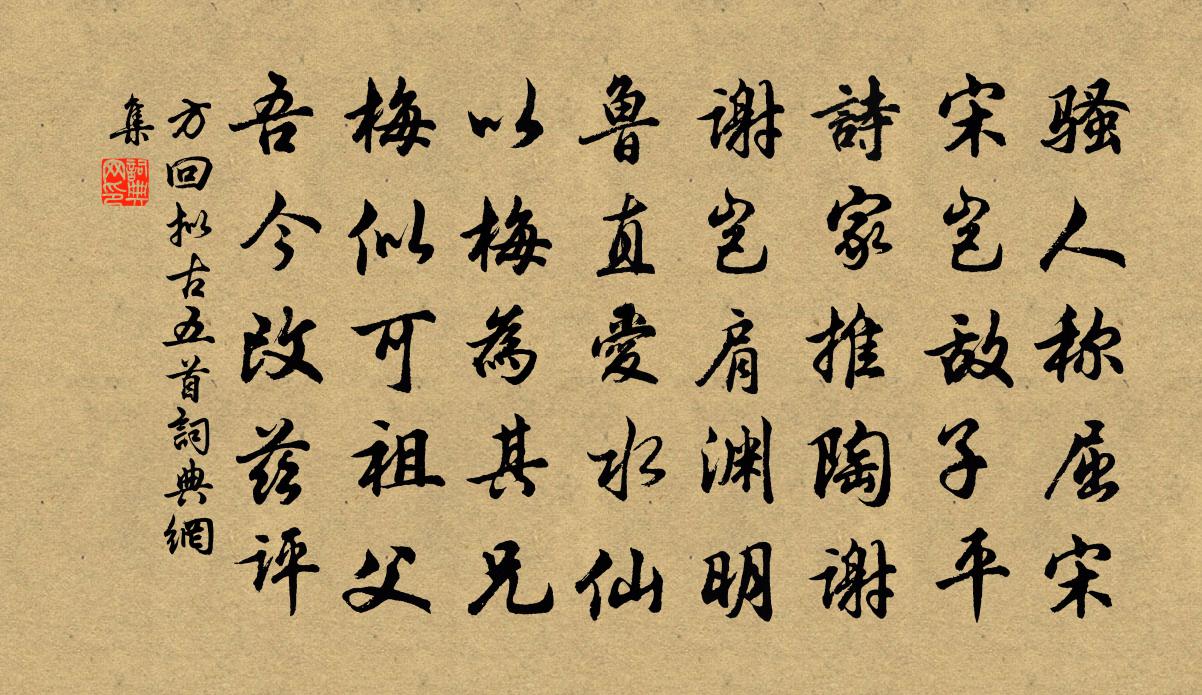 骚人称屈宋
宋岂敌子平
詩家推陶谢
谢岂肩渊明
魯直愛水仙
以梅為其兄
梅似可祖父
吾今改兹评
方回拟古五首詞典網
集
詞典网印